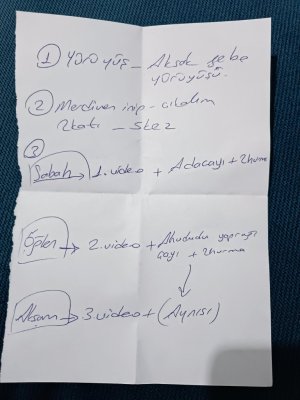 ① Yürüyüş - Akşam gebe
yürüyüşü.
② Merdiven inip - çıkalım
2katı - 5kez
③
Sabah → 1.video + Adaçayı + 2hurma
Öğlen → 2.video + Ahududu yaprağı
çayı + 2hurma
Akşam → 3.video + (Aynısı)